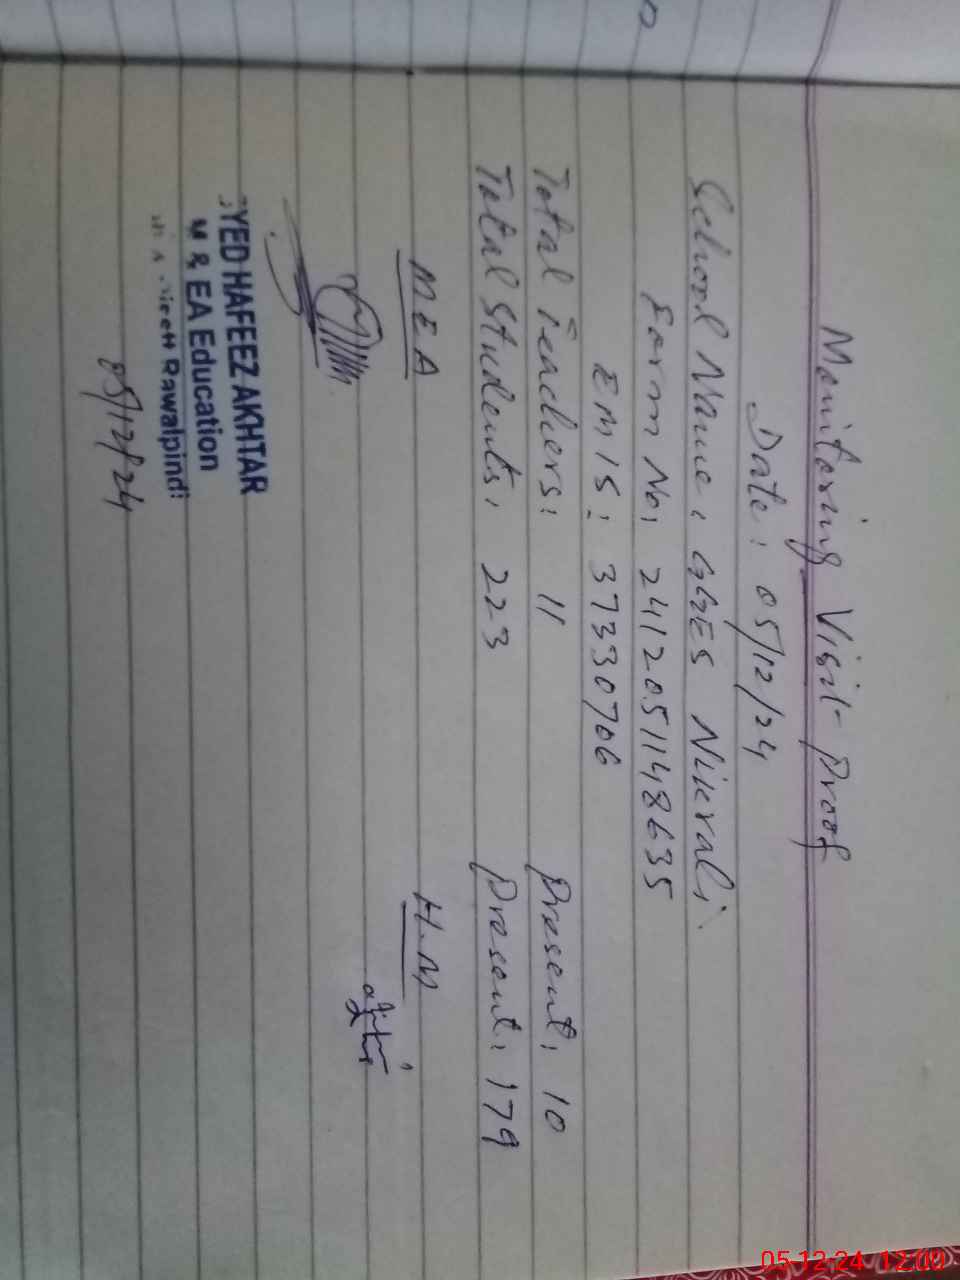 Monitoring Visit Proof
Date: 05/12/24
School Name: GGES Nikrali
Form No: 2412051148635
EMIS: 37330706
Total Teachers: 11 Present: 10
Total Students: 223 Present: 179
MEA H.M
YED HAFEEZ AKHTAR
M & EA Education
Rawalpindi
05/12/24
05.12.24 12:00